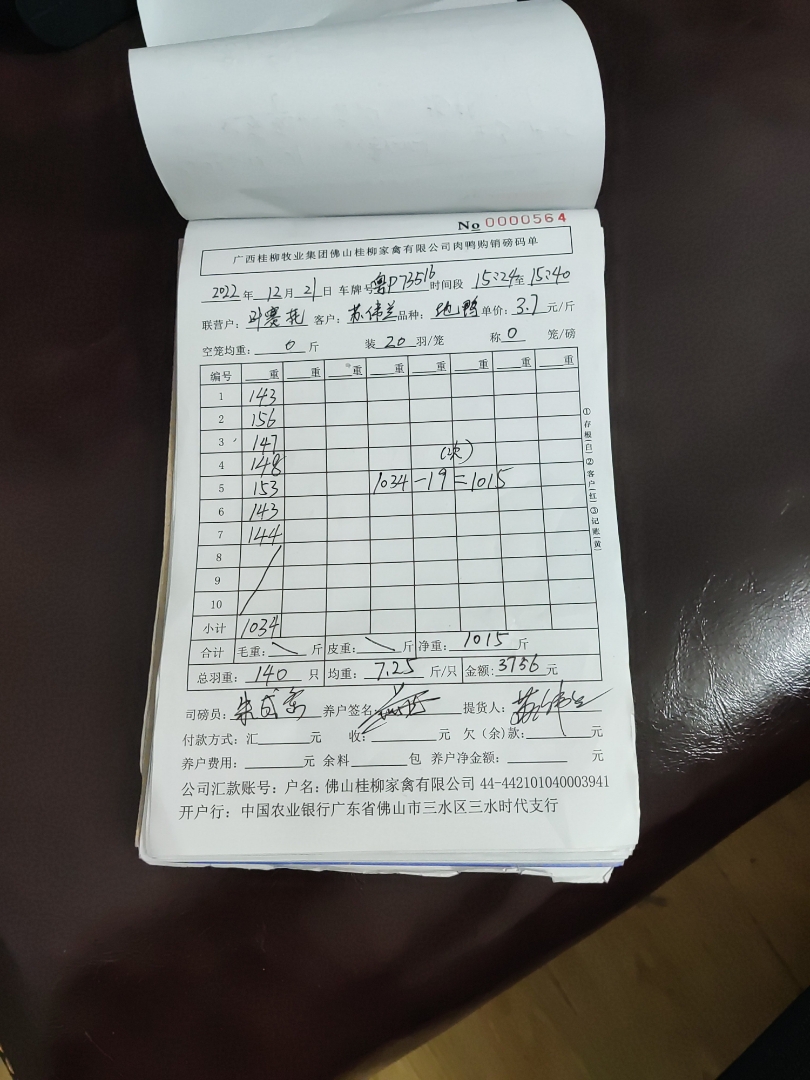 No 0000564
广西桂柳牧业集团佛山桂柳家禽有限公司肉鸭购销磅码单
2022年12月21日 车牌号粤P73516时间段 15:24至15:40
联营户: 客户: 苏伟兰品种: 地鸭单价: 3.7元/斤
空笼均重: 0斤 装20羽/笼 称0笼/磅
编号 重 重 重 重 重 重 重 重
1 143
2 156
3 147
4 148 (次)
5 153 1034-19=1015
6 143
7 144
8
9
10
小计 1034
合计 毛重: 斤 皮重: 斤 净重: 1015斤
总羽重: 140只 均重: 7.25斤/只 金额: 3756元
司磅员: 养户签名: 提货人: 苏伟兰
付款方式: 汇 元 收: 元 欠(余)款: 元
养户费用: 元 余料 包 养户净金额: 元
公司汇款账号: 户名: 佛山桂柳家禽有限公司 44-442101040003941
开户行: 中国农业银行广东省佛山市三水区三水时代支行
①存根(白)②客户(红)③记账(黄)